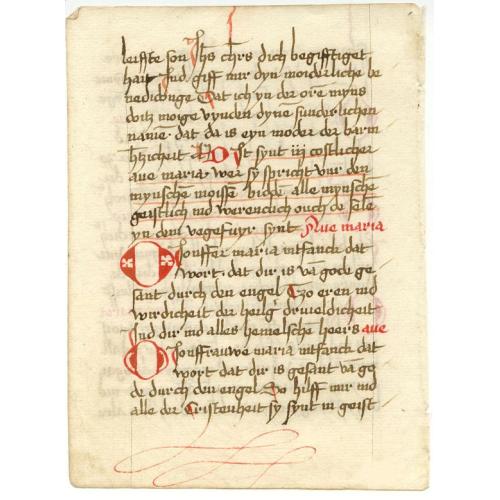 leiffte son Jhs chrs dich begifftiget
hait Jnd giff mir dyn moiderliche be
nedidonge Dat ich yn der ore myns
doitz moige vynden dynē sunderlichen
namē dat da is eyn moder der barm
htzicheit Dit synt iij costlicher
aue maria wer sy spricht vur den
mynschē moisse bidde alle mynschē
geistlich ind werentlich ouch de sele
yn dem vegefuyr synt Aue maria
O Jouffer maria intfanck dat
wort dat dir is vā gode ge
sant durch den engel Tzo eren ind
wirdicheit der heilg drueldicheit
Jnd dir ind alles hemelsche heers aue
O Jouffrauwe maria intfanck dat
wort dat dir is gesant vā go
de durch den engel So hilff mir ind
alle der Cristenheit sy synt in geist